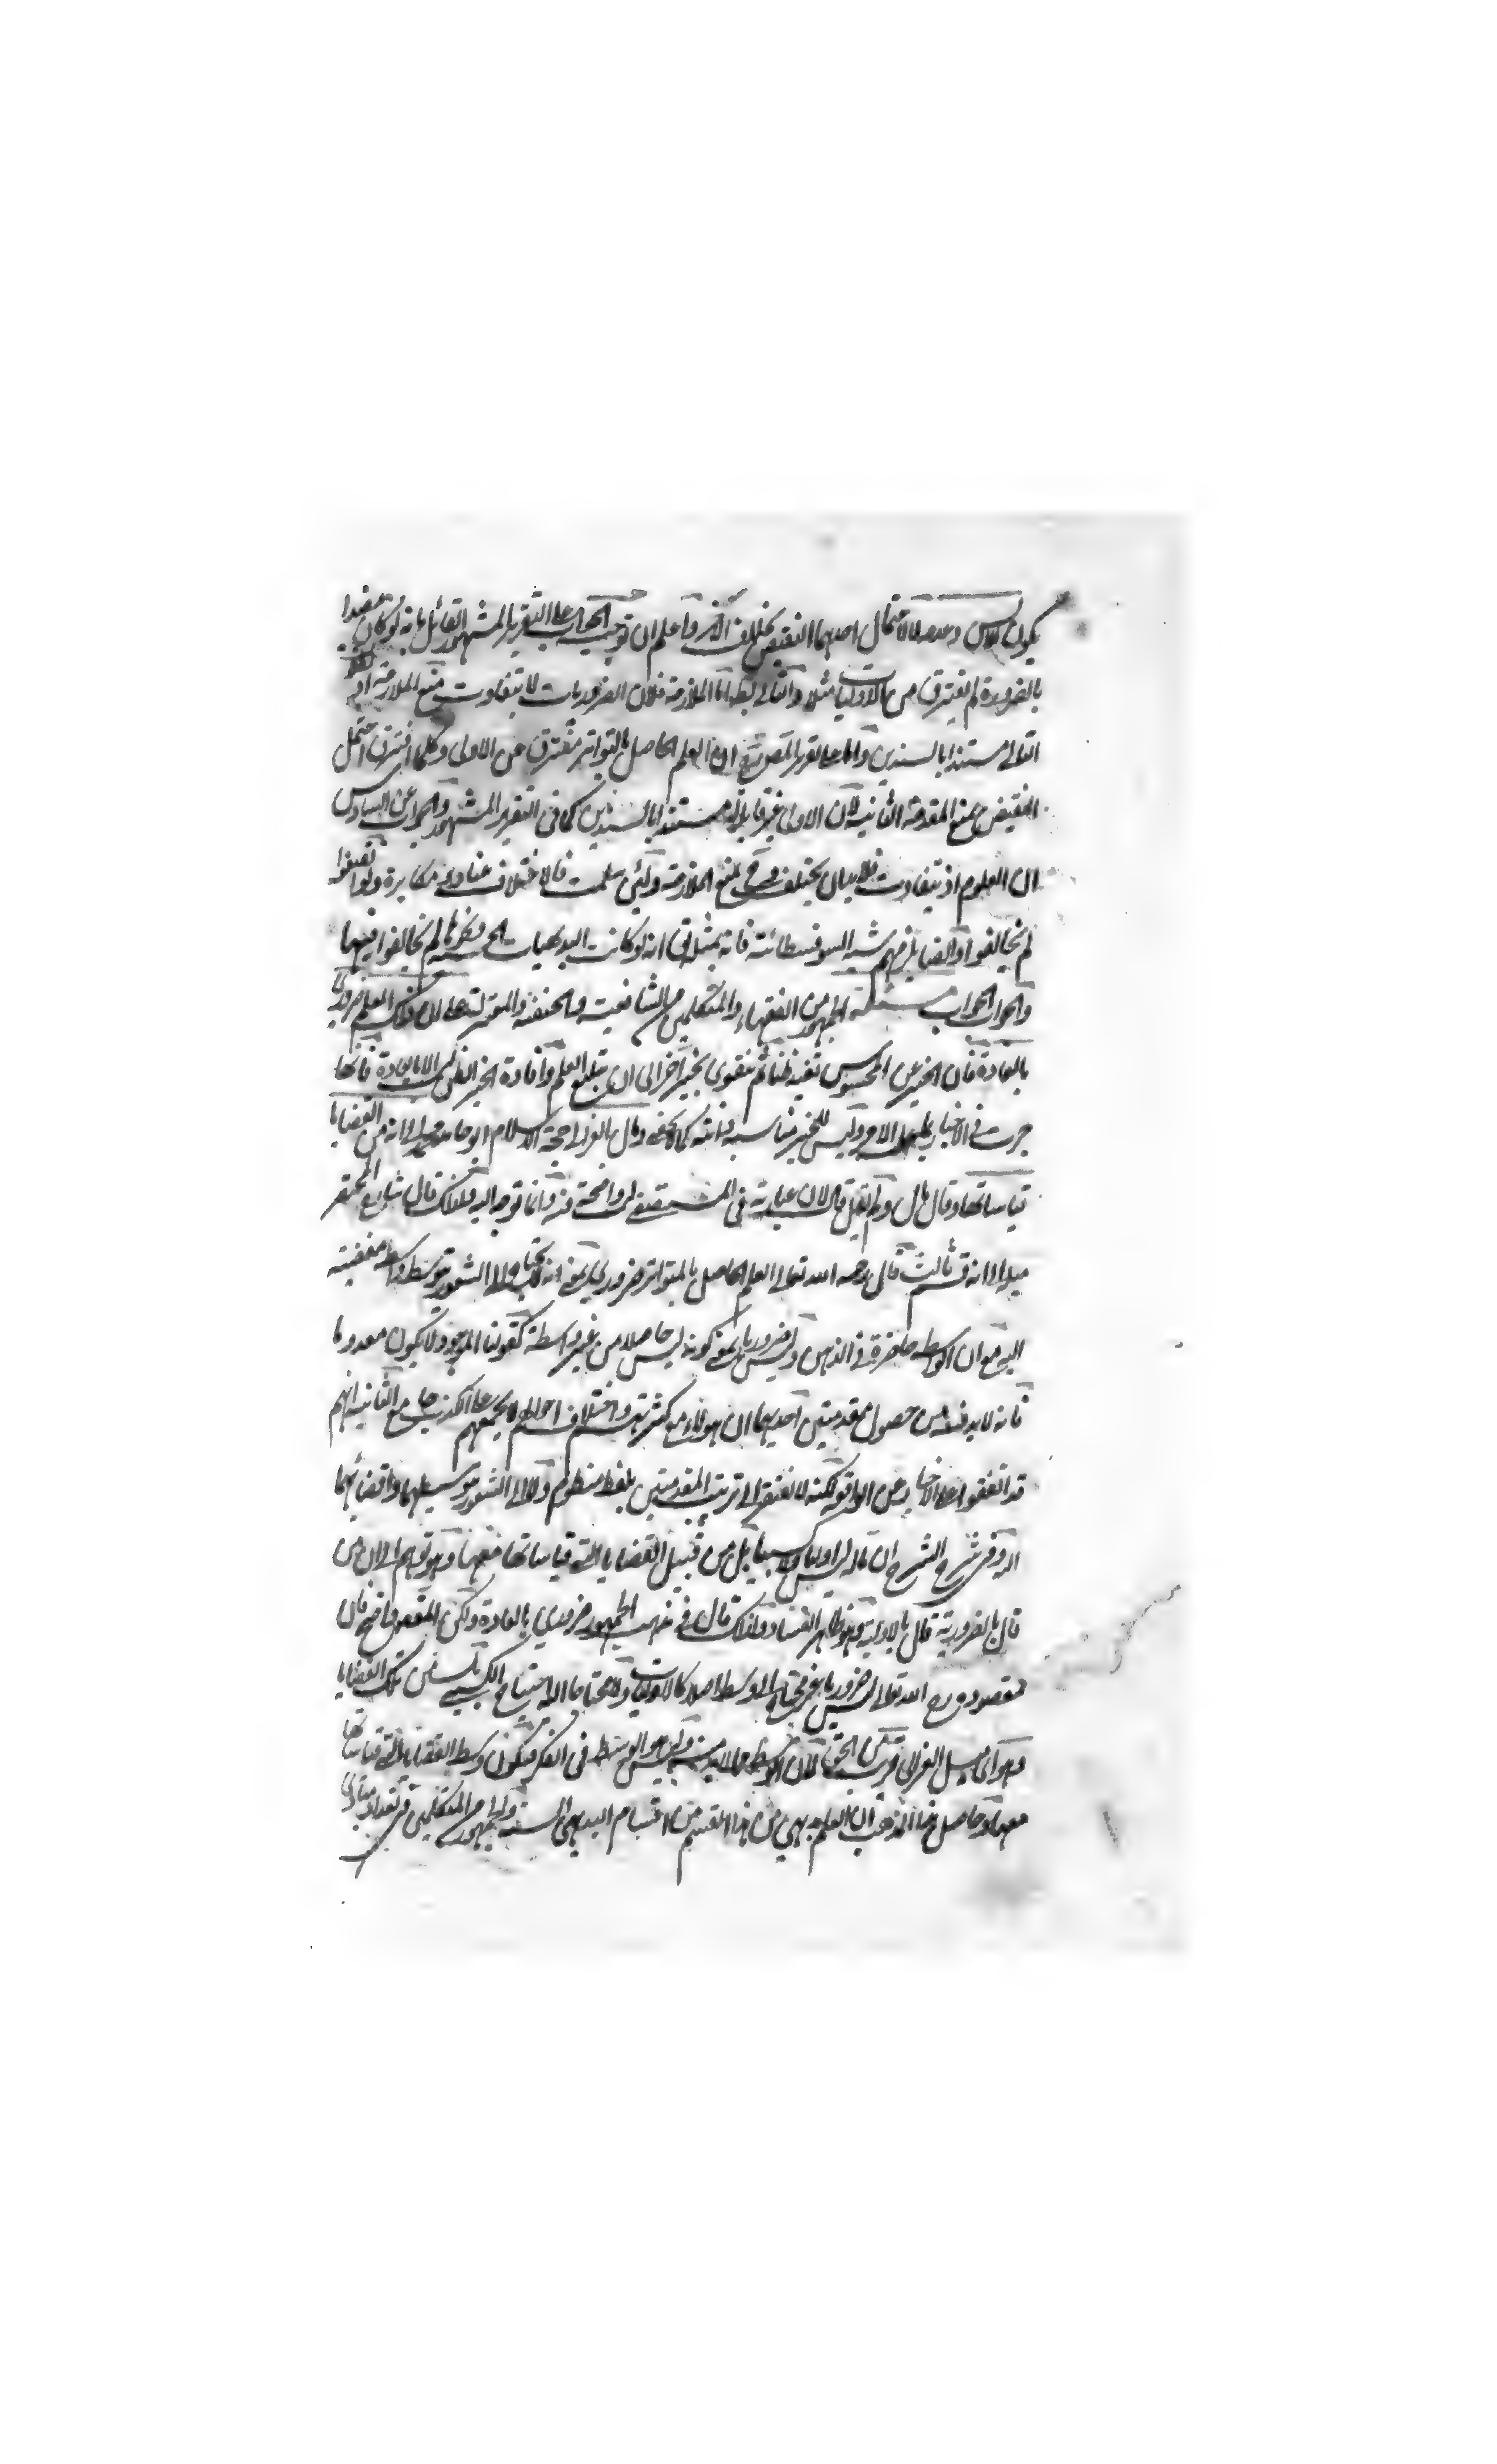 يكون للانس وعدمه لا لاحتمال احدهما النقيض بخلاف الآخر واعلم ان توجيه الجواب على التقرير المشهور القائل بانه لو كان مفيدا
بالضرورة لم يفترق من الاوليات مثلا والتالي بط اما الملازمة فلان الضروريات لا تتفاوت منع الملازمة او
التالي مستندا بالسندين واما على تقرير المص ان العلم الحاصل بالتواتر مفترق عن الاولى وكلما افترق احتمل
النقيض منع المقدمة الثانية لان الاولى غير قابلة مستندا بالسندين كما في التقرير المشهور والجواب عن السادس
ان العلوم اذ تتفاوت فلا يبال يختلف بمنع الملازمة ولئن سلمت فالاختلاف عنادي مكابرة ولو انصفوا
لم يخالفوا وايضا يلزمهم شبه السوفسطائية فانه بمثل ان لو كانت البديهيات لم يخالفوا فيها
والجواب الجواب مسئلة الجمهور من الفقهاء والمتكلمين من الشافعية والحنفية والمعتزلة على ان ذلك العلم ضروري
بالعادة فان الخبر عن المحسوس تفيد ظنا ثم يتقوى بخبر آخر الى ان يبلغ العلم وافادة الخبر الظن ليست الا بالعادة فانها
جرت في الاخبار وليس للخبر مناسبة ذاتية كما لا يخفى وقال الغزالي حجة الاسلام ابو حامد محمد انه من القضايا
قياساتها وقال مال ولم يقل قال لان عبارته في المستصفى ليست واضحة فيه وانما توجه اليه ولذلك قال شارح المختصر
ميلا الى انه قسم ثالث قال رحمه الله تعالى العلم الحاصل بالمتواتر ضروري بمعنى انه لا يحتاج الى الشعور بتوسط واسطة مفضية
اليه مع ان الواسطة حاضرة في الذهن وليس ضروريا بمعنى كونه ليس حاصلا من غير واسطة كقولنا الموجود لا يكون معدوما
فانه لابد فيه من حصول مقدمتين احديهما ان هولاء مع كثرتهم واختلاف احوالهم لا يجمعهم على الكذب جامع الثانية انهم
قد اتفقوا على الاخبار عن الواقعة لكنه لا يفتقر الى ترتيب المقدمتين بلفظ منظوم ولا الى الشعور بتوسطهما وافضائهما
اليه وفي شرح الشرح ان ليس اوليا ولا كسبيا بل من قبيل القضايا التي قياساتها معها وهو توهم لان من
قال بالضرورية قال بالاولية وهو ظاهر الفساد ولذلك قال في مذهب الجمهور ضروري بالعادة ولكن المقصود واضح فان
مقصوده رح الله تعالى ليس ضروريا غير محتاج الى وسط اصلا كالاوليات ولا محتاجا اليه احتياج الكسبي بل من تلك القضايا
وهو اي ميل الغزالي قريب من الحق لان الوسط لابد منه وليس هو الوسط في الفكر فيكون وسط القضايا التي قياساتها
معها وحاصل هذا المذهب ان العلم بديهي من هذا القسم من اقسام البديهي الستة والجمهور من المتكلمين في تعداد مبادي